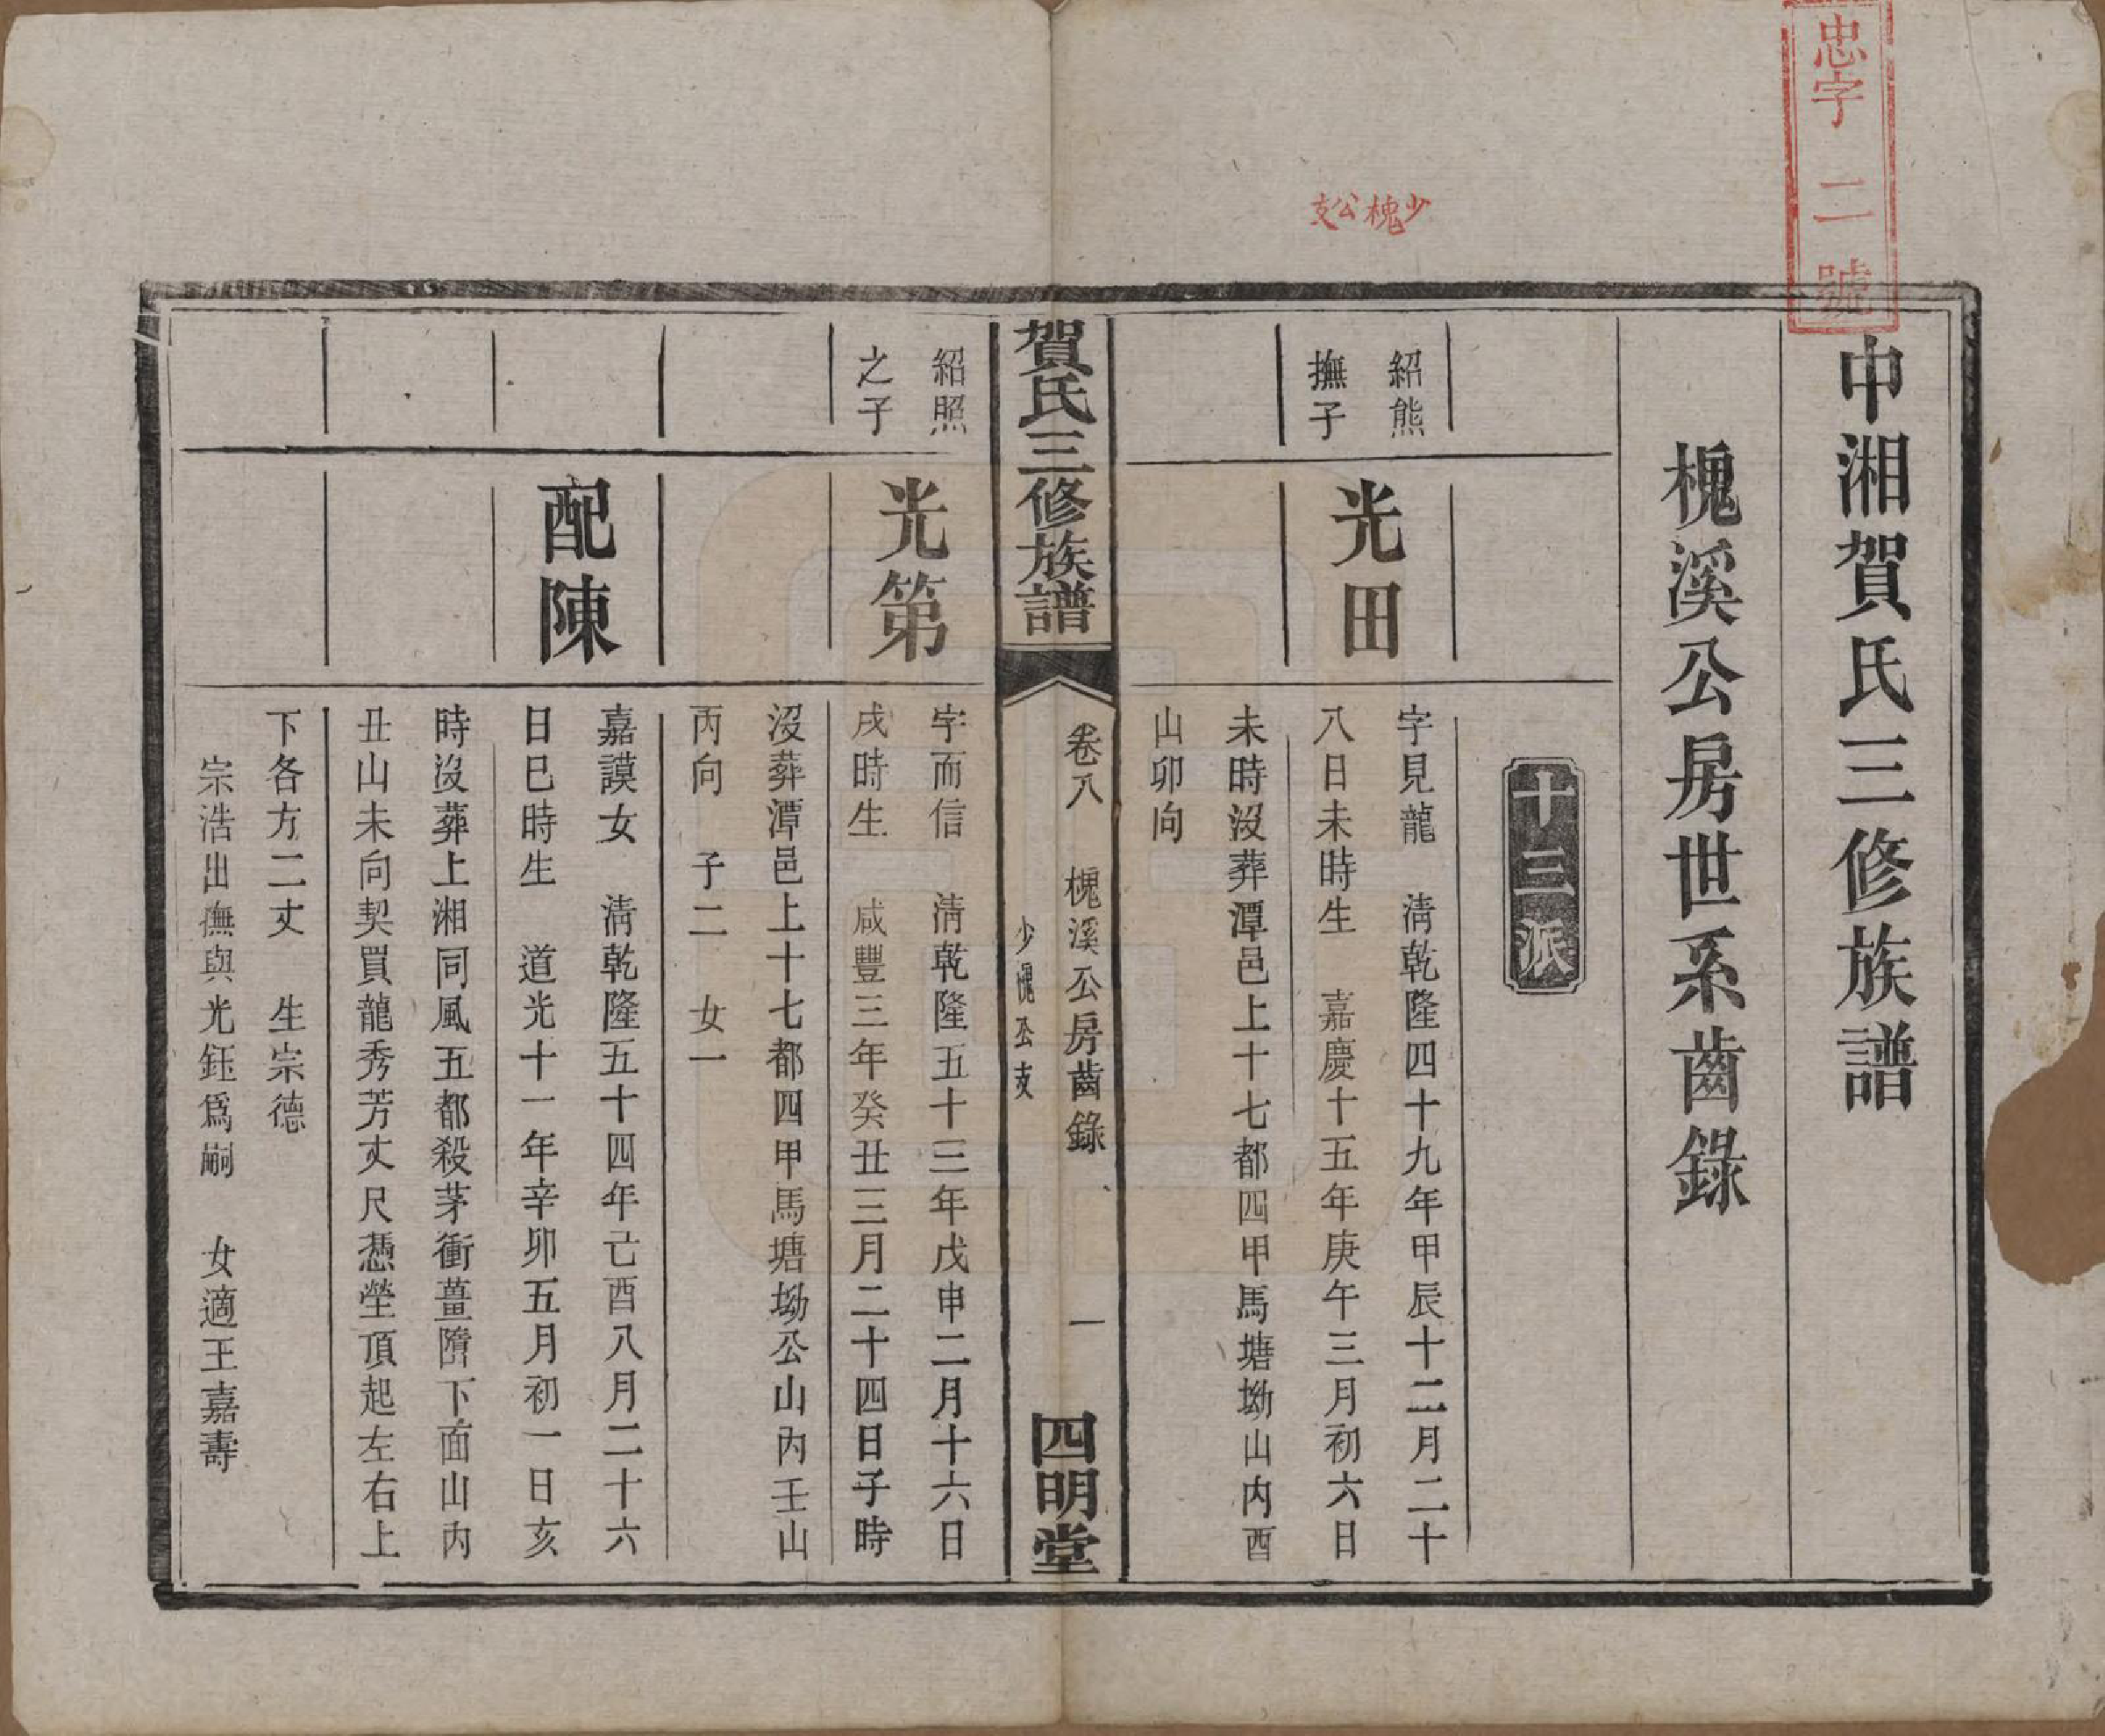 忠字二號
少槐公支
中湘賀氏三修族譜
槐溪公房世系齒錄
十三派
紹熊
撫子
光田
字見龍　清乾隆四十九年甲辰十二月二十
八日未時生　嘉慶十五年庚午三月初六日
未時沒葬潭邑上十七都四甲馬塘坳山内酉
山卯向
賀氏三修族譜
卷八　槐溪公房齒錄　一
少槐公支
四明堂
紹照
之子
光第
字而信　清乾隆五十三年戊申二月十六日
戌時生　咸豐三年癸丑三月二十四日子時
沒葬潭邑上十七都四甲馬塘坳公山内壬山
丙向　子二　女一
配陳
嘉謨女　清乾隆五十四年己酉八月二十六
日巳時生　道光十一年辛卯五月初一日亥
時沒葬上湘同風五都殺茅衝薑隮下面山内
丑山未向契買龍秀芳丈尺憑塋頂起左右上
下各方二丈　生宗德
宗浩出撫與光鈺爲嗣　女適王嘉壽